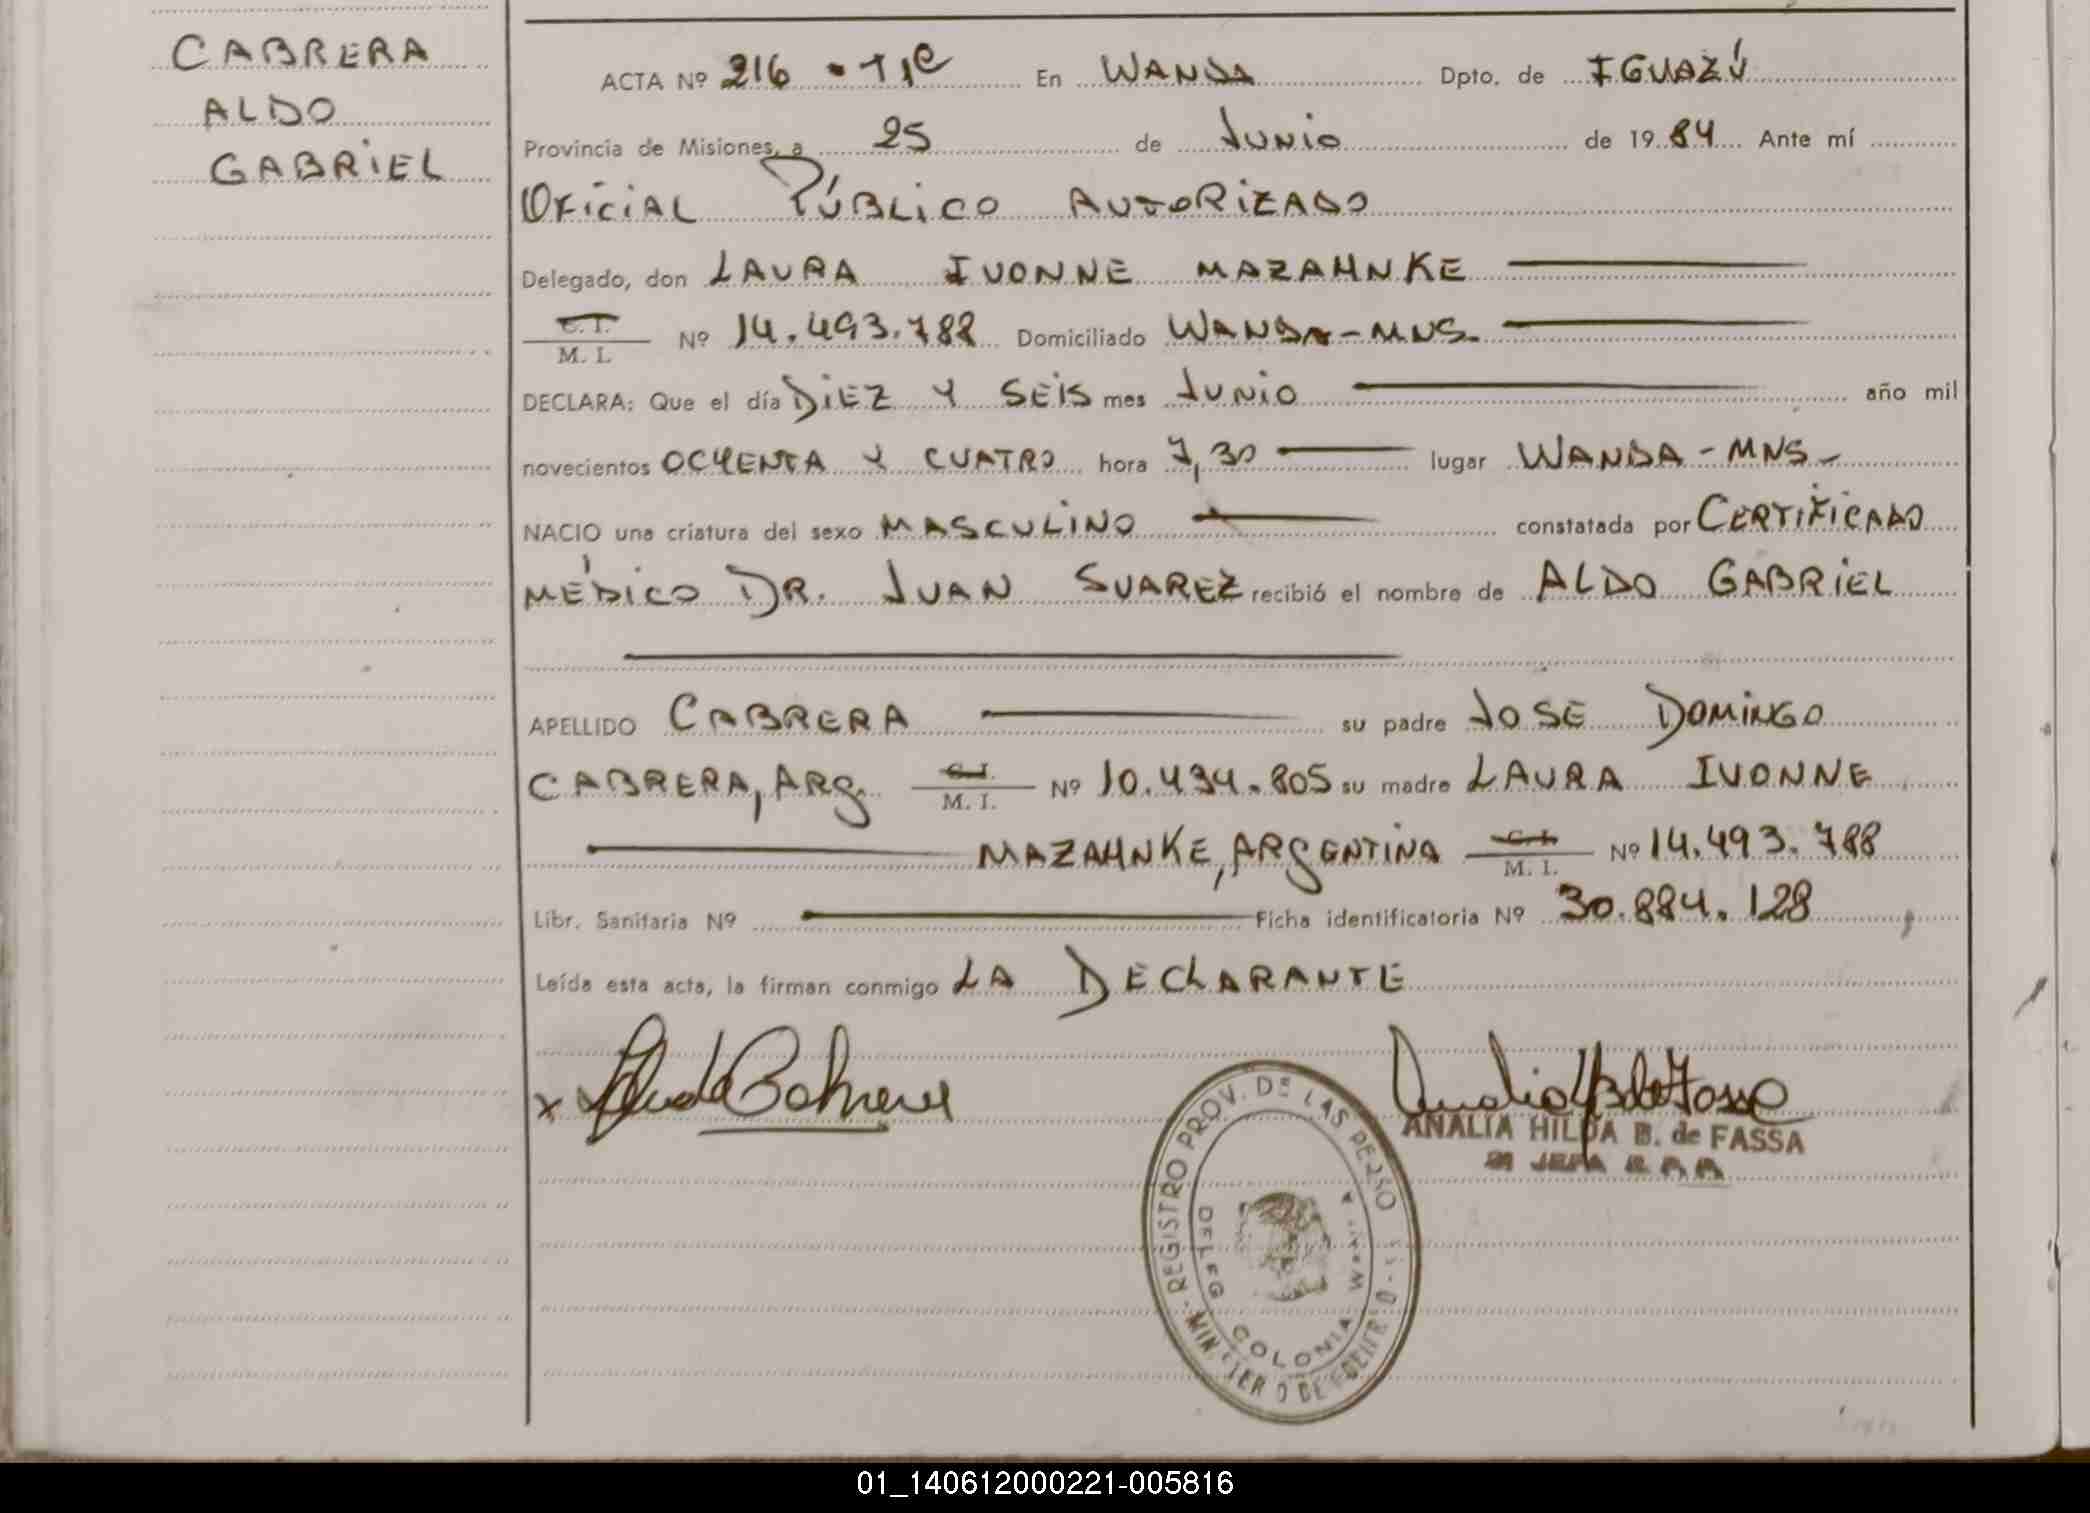 CABRERA
ALDO
GABRIEL
ACTA Nº 216 - T1C En WANDA Dpto. de IGUAZÚ
Provincia de Misiones, a 25 de JUNIO de 1984 Ante mí
OFICIAL PÚBLICO AUTORIZADO
Delegado, don LAURA IVONNE MAZAHNKE
C. I.
M. I. Nº 14.493.788 Domiciliado WANDA-MNS.
DECLARA: Que el día DIEZ Y SEIS mes JUNIO año mil
novecientos OCHENTA Y CUATRO hora 7,30 lugar WANDA-MNS-
NACIO una criatura del sexo MASCULINO constatada por CERTIFICADO
MÉDICO DR. JUAN SUAREZ recibió el nombre de ALDO GABRIEL
APELLIDO CABRERA su padre JOSE DOMINGO
CABRERA, ARG. C. I.
M. I. Nº 10.434.805 su madre LAURA IVONNE
MAZAHNKE, ARGENTINA C. I.
M. I. Nº 14.493.788
Libr. Sanitaria Nº Ficha identificatoria Nº 30.884.128
Leída esta acta, la firman conmigo LA DECLARANTE
x
ANALIA HILDA B. de FASSA
REGISTRO PROV. DE LAS
DELEG
COLONIA
01_140612000221-005816